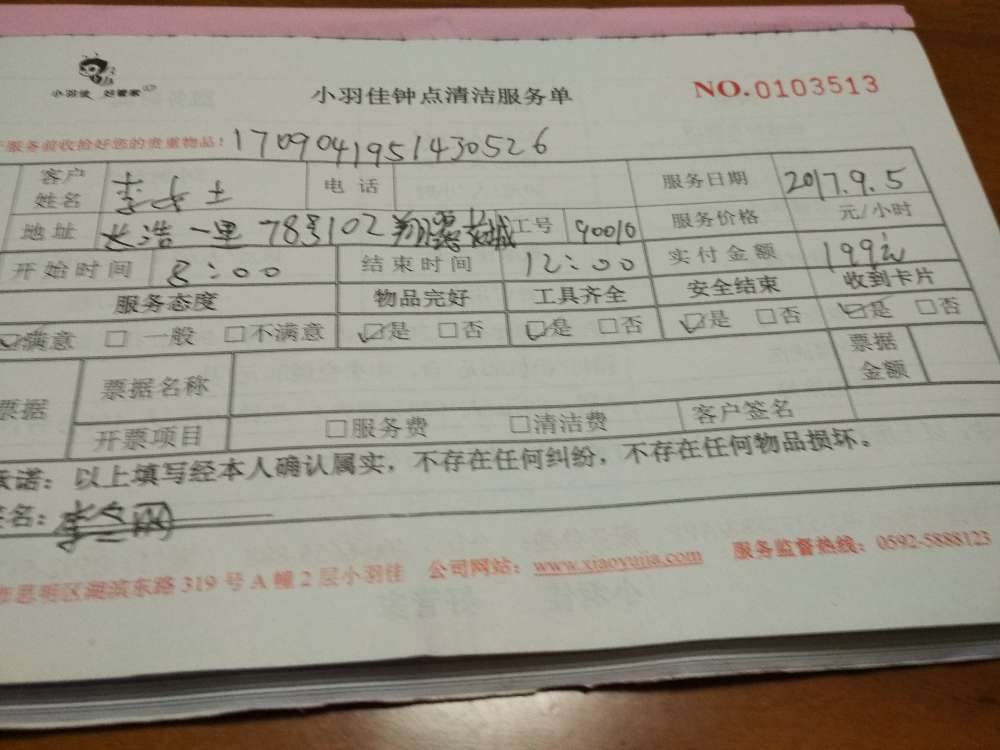 小羽佳 好管家
小羽佳钟点清洁服务单
NO.0103513
服务前收拾好您的贵重物品：1709041951430526
客户姓名 李女士 电话 服务日期 2017.9.5
地址 长浩一里78号102 工号 90010 服务价格 元/小时
开始时间 8:00 结束时间 12:00 实付金额 199元
服务态度 物品完好 工具齐全 安全结束 收到卡片
☑满意 □一般 □不满意 ☑是 □否 ☑是 □否 ☑是 □否 ☑是 □否
票据 票据名称 票据金额
开票项目 □服务费 □清洁费 客户签名
承诺：以上填写经本人确认属实，不存在任何纠纷，不存在任何物品损坏。
签名：
市思明区湖滨东路319号A幢2层小羽佳 公司网站：www.xiaoyujia.com 服务监督热线：0592-5888123